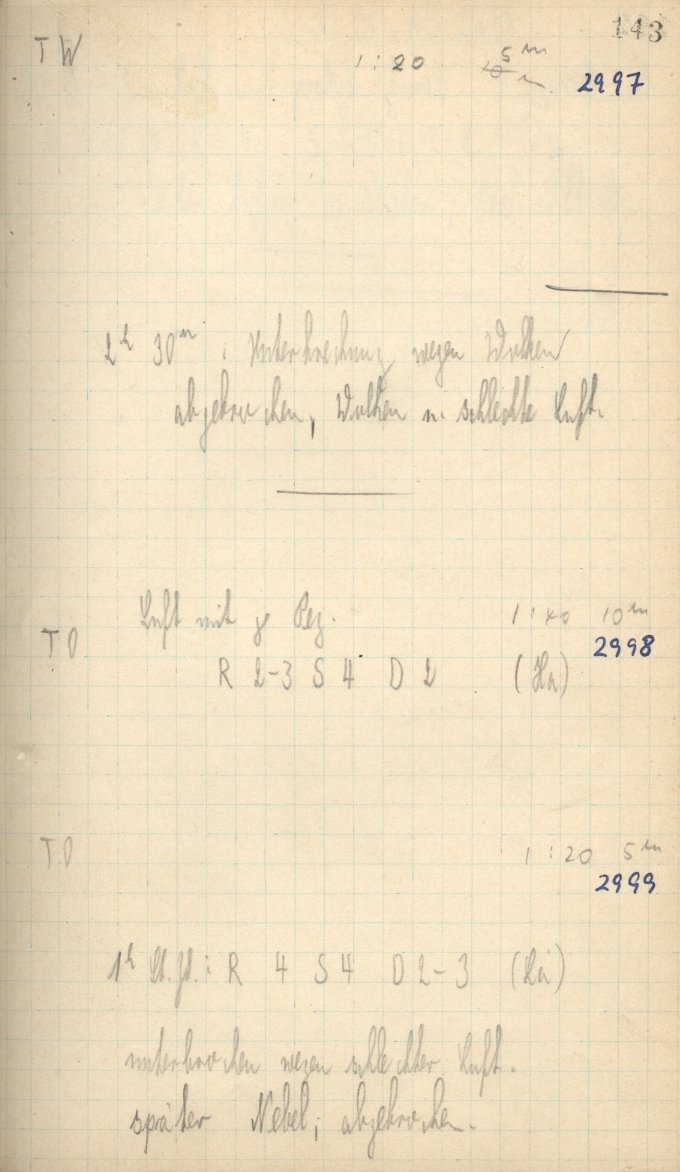 143
TW 1:20 5m
2997
2h 30m : Unterbrechung wegen Wolken
abgebrochen, Wolken u. schlechte Luft.
Luft mit 1:40 10m
TO 2998
R 2-3 S 4 D 2 (Hä)
TO 1:20 5m
2999
1h R 4 S 4 D 2-3 (Hä)
unterbrochen wegen schlechter Luft.
später Nebel, abgebrochen.